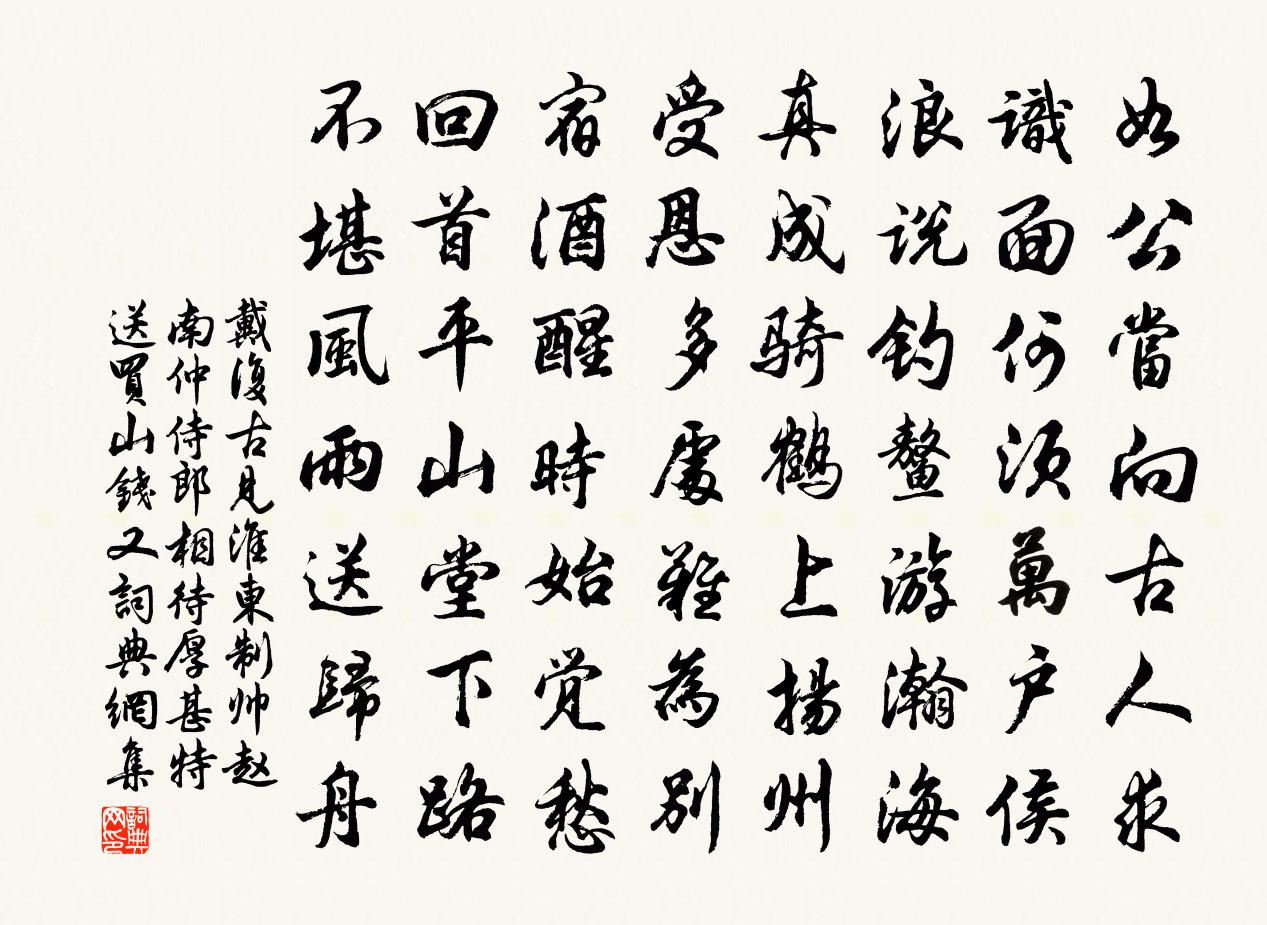 如公當向古人求
識面何須萬户侯
浪説釣鼇游瀚海
真成騎鶴上揚州
受恩多處難為别
宿酒醒時始覺愁
回首平山堂下路
不堪風雨送歸舟
戴復古見淮東制帅赵
南仲侍郎相待厚甚特
送買山錢又詞典網集
詞典网印